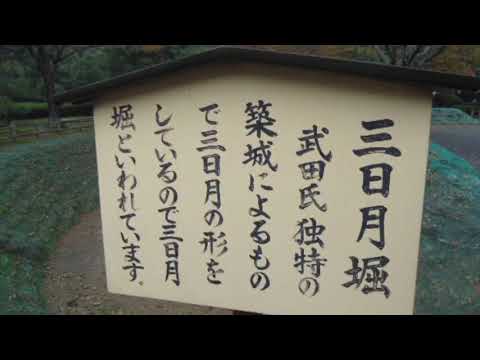 三日月堀
武田氏独特の
築城によるもの
で三日月の形を
しているので三日月
堀といわれています。